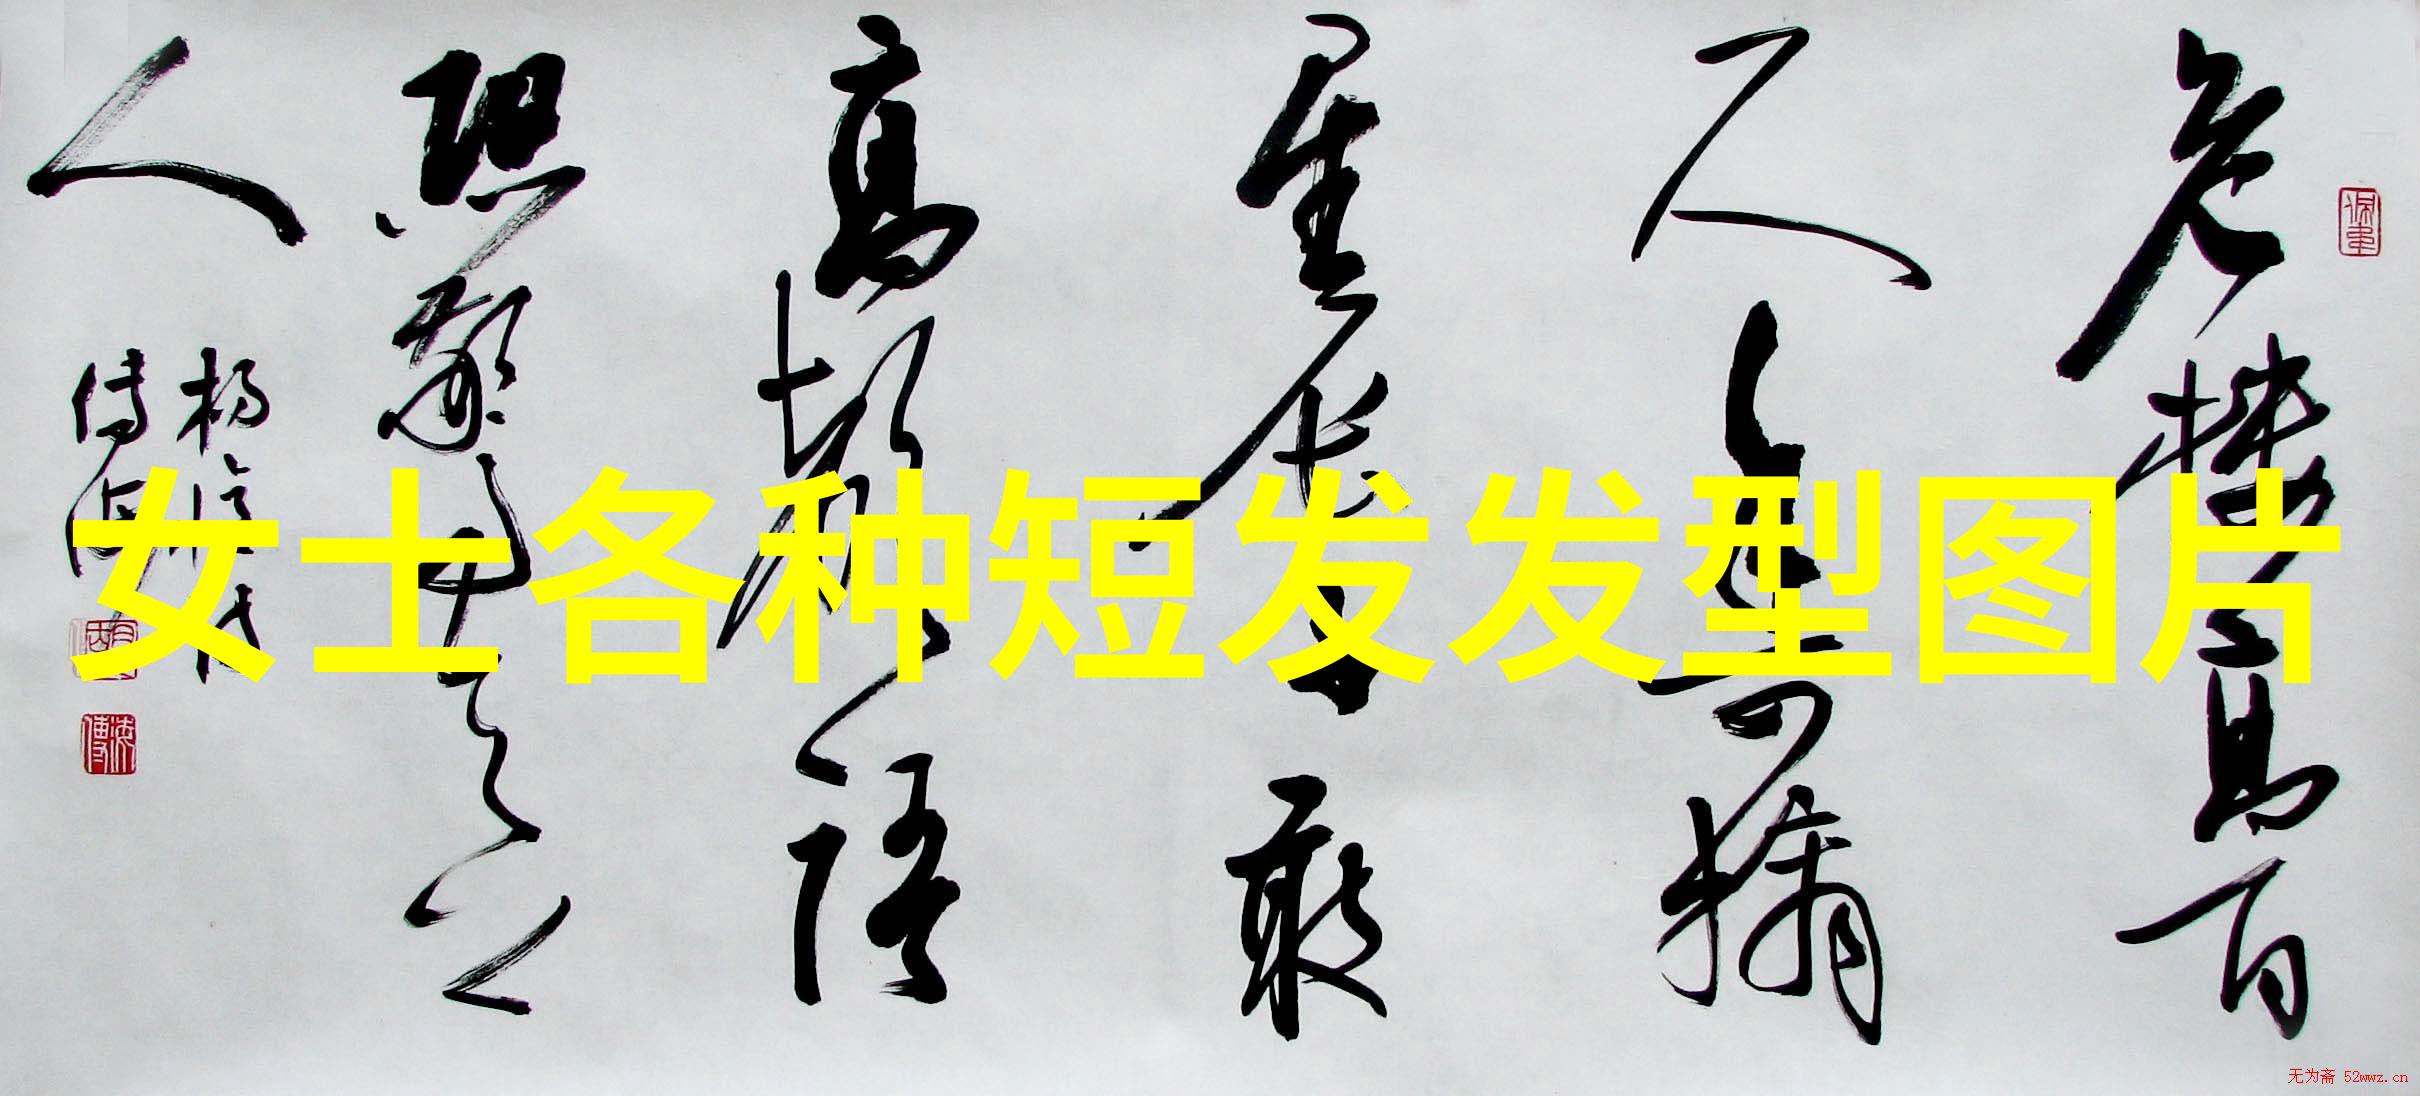 危樓高百
尺手可摘
星辰不敢
高聲語
恐驚天上
人
女士各种短发发型图片
无为斋 52wwz.cn